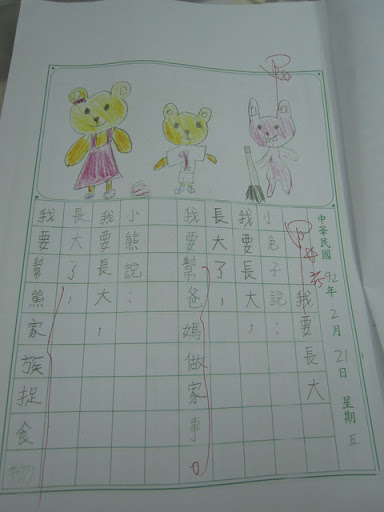 中華民國92年2月21日 星期五
我要長大
小兔子說：
我要長大，
長大了，
我要幫爸媽做家事。
小熊說：
我要長大，
長大了，
我要幫熊家族捉食